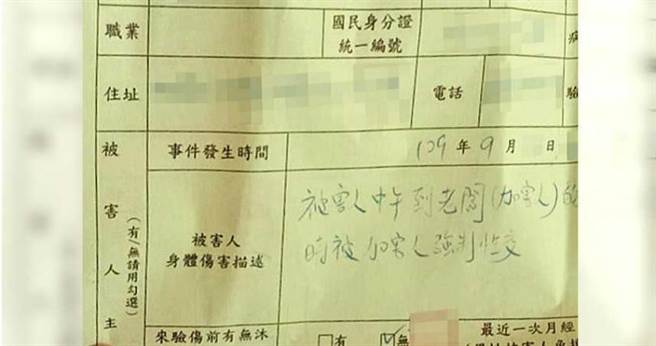 職業
國民身分證
統一編號
住址
電話
事件發生時間
109年9月 日
被害人主
(有/無請用勾選)
被害人
身體傷害描述
被害人中午到老闆(加害人)的
時被加害人強制性交
來驗傷前有無沐
□有
☑無
最近一次月經